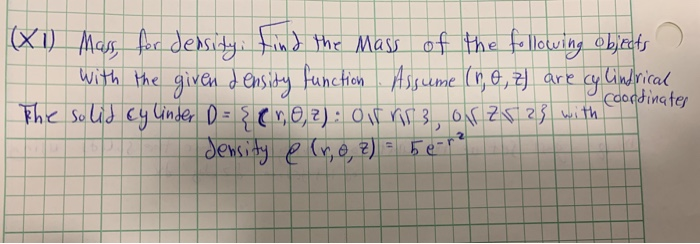 (XI) Mass for density: Find the Mass of the following objects
with the given density function. Assume (r, θ, z) are cylindrical
coordinates
The solid cylinder D = {(r, θ, z): 0 ≤ r ≤ 3, 0 ≤ z ≤ 2} with
density ρ (r, θ, z) = 5e^{-r^2}